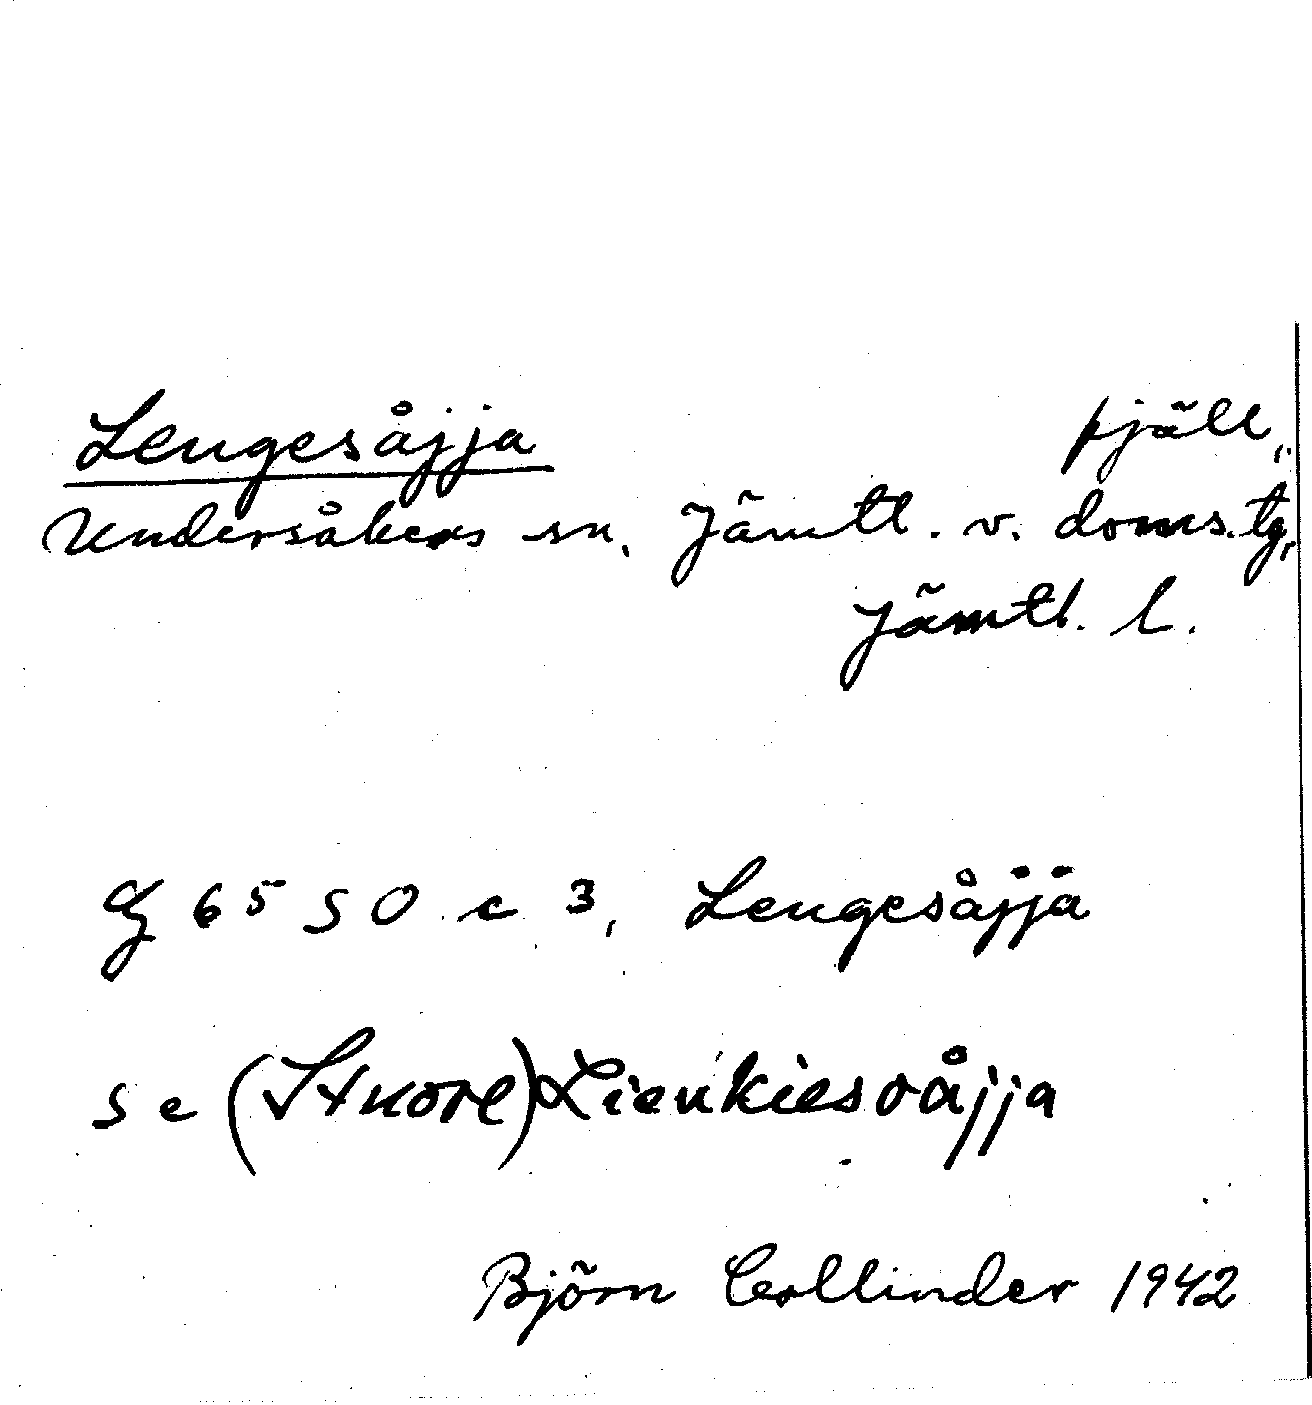 Lengesåjja fjäll,
Undersåkers sn. Jämtl. v. doms.tg,
Jämtl. l.
6550 c 3, Lengesåjja
se (Stuore)Lienkiesoåjja
Björn Collinder 1942